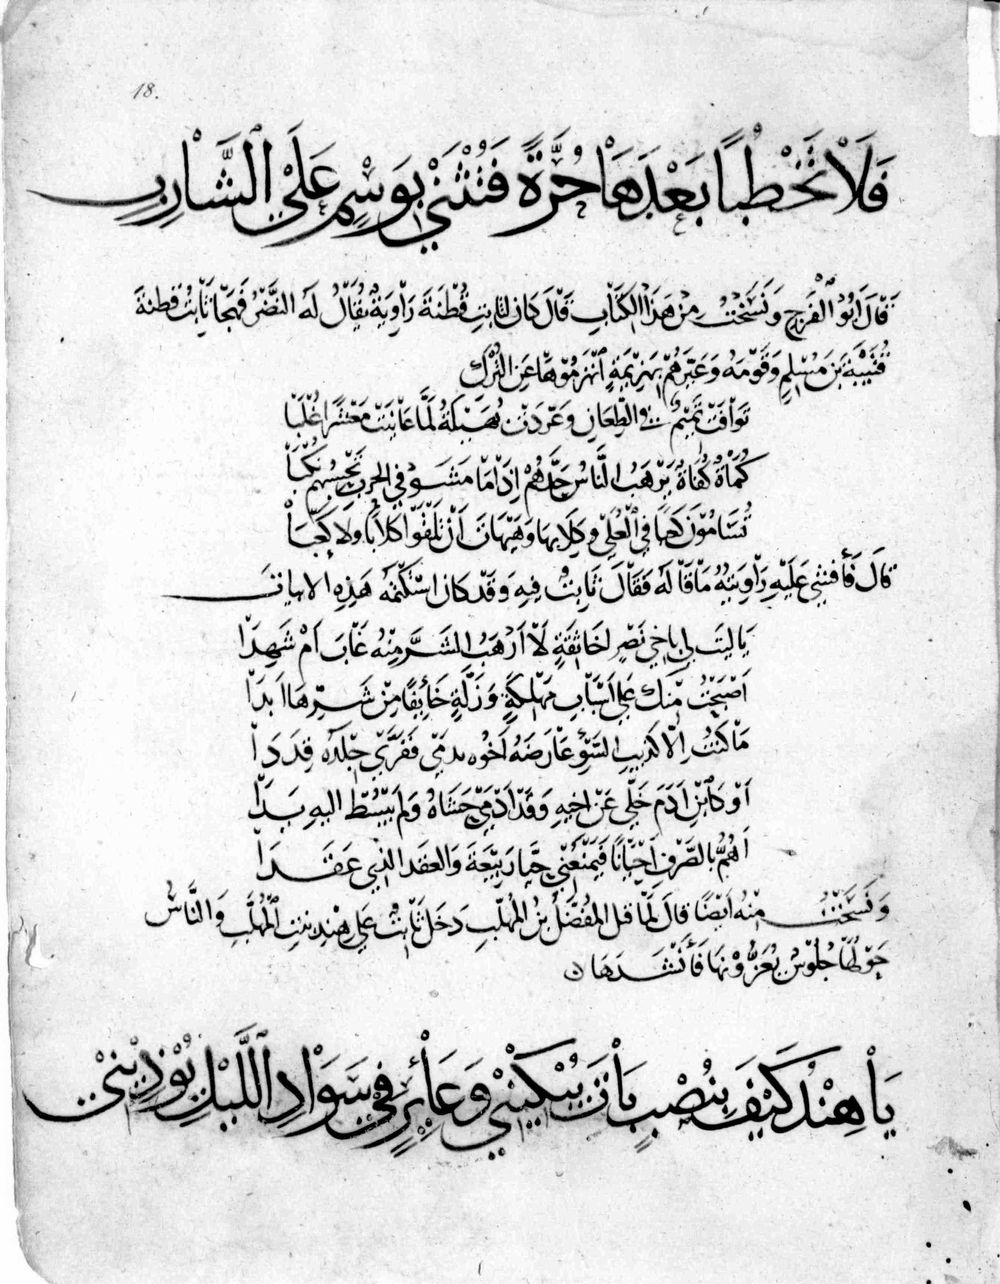 18.
فَلَا تَخْطُبَا بَعْدَهَا حُرَّةً فَتُثْنَي بِوَسْمٍ عَلَى الشَّارِبِ
قَالَ أَبُو الْفَرَجِ وَنَسَخْتُ مِنْ هَذَا الْكِتَابِ قَالَ كَانَ لِثَابِتِ قُطْنَةَ رَاوِيَةٌ يُقَالُ لَهُ النَّضْرُ فَهَجَا ثَابِتُ قُطْنَةَ
قُتَيْبَةَ بْنَ مُسْلِمٍ وَقَوْمَهُ وَعَيَّرَهُمْ بِهَزِيمَةٍ انْهَزَمُوهَا عَنِ التُّرْكِ
تَوَافَتْ تَمِيمٌ فِي الطِّعَانِ وَعَرَّدَتْ بُهَيْلَةُ لَمَّا عَايَنَتْ مَعْشَرًا غُلْبَا
كُمَاةٌ كُفَاةٌ يَرْهَبُ النَّاسُ حَدَّهُمْ إِذَا مَا مَشَوْا فِي الْحَرْبِ تَحْسِبُهُمْ نُكْبَا
تُسَامُونَ كَعْبًا فِي الْعُلَى وَكِلَابَهَا وَهَيْهَاتَ أَنْ تَلْقَوْا كِلَابًا وَلَا كَعْبَا
قَالَ فَأَفْشَى عَلَيْهِ رَاوِيَتُهُ مَا قَالَهُ فَقَالَ ثَابِتٌ فِيهِ وَقَدْ كَانَ اسْتَكْتَمَهُ هَذِهِ الْأَبْيَاتَ
يَا لَيْتَ لِي بِأَخِي نَصْرٍ أَخَا ثِقَةٍ لَا أَرْهَبُ الشَّرَّ مِنْهُ غَابَ أَمْ شَهِدَا
أَصْبَحْتُ مِنْكَ عَلَى أَسْبَابِ مَهْلَكَةٍ وَزَلَّةٍ خَائِفًا مِنْ شَرِّهَا أَبَدَا
مَا كُنْتُ إِلَّا كَذِيبِ السَّوْءِ عَارَضَهُ أَخُوهُ يَدْمَى فَفَرَّى جِلْدَهُ قِدَدَا
أَوْ كَابْنِ آدَمَ خَلَّى عَنْ أَخِيهِ وَقَدْ أَدْمَى حَشَاهُ وَلَمْ يَبْسُطْ إِلَيْهِ يَدَا
أَهُمُّ بِالصَّرْفِ أَحْيَانًا فَيَمْنَعُنِي حَيَّا رَبِيعَةَ وَالْعَقْدُ الَّذِي عَقَدَا
وَنَسَخْتُ مِنْهُ أَيْضًا قَالَ لَمَّا قُتِلَ الْمُفَضَّلُ بْنُ الْمُهَلَّبِ دَخَلَ ثَابِتٌ عَلَى هِنْدِ بِنْتِ الْمُهَلَّبِ وَالنَّاسُ
حَوْلَهَا جُلُوسٌ يُعَزُّونَهَا فَأَنْشَدَهَا
يَا هِنْدُ كَيْفَ بِنُصْبٍ بَاتَ يُبْكِينِي وَعَائِرٍ فِي سَوَادِ اللَّيْلِ يُؤْذِينِي